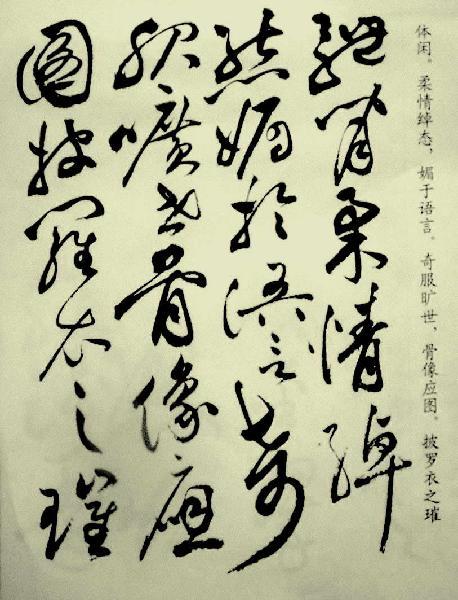 体闲。柔情绰态，媚于语言。奇服旷世，骨像应图。披罗衣之璀
體閑柔情綽
態媚於語言奇
服曠世骨像應
圖披羅衣之璀